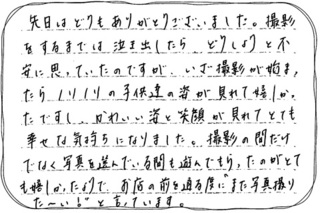 先日はどうもありがとうございました。撮影
をするまでは泣き出したら どうしようと不
安に思っていたのですが、いざ撮影が始ま
たらノリノリの子供達の姿が見れて嬉しか
たですし、かわいい姿と笑顔が見れてとても
幸せな気持ちになりました。撮影の間だけ
でなく写真を選んでいる間も遊んでもらったのがとて
も嬉しかったようで お店の前を通る度に"また写真撮り
た〜い!!"と言っています。